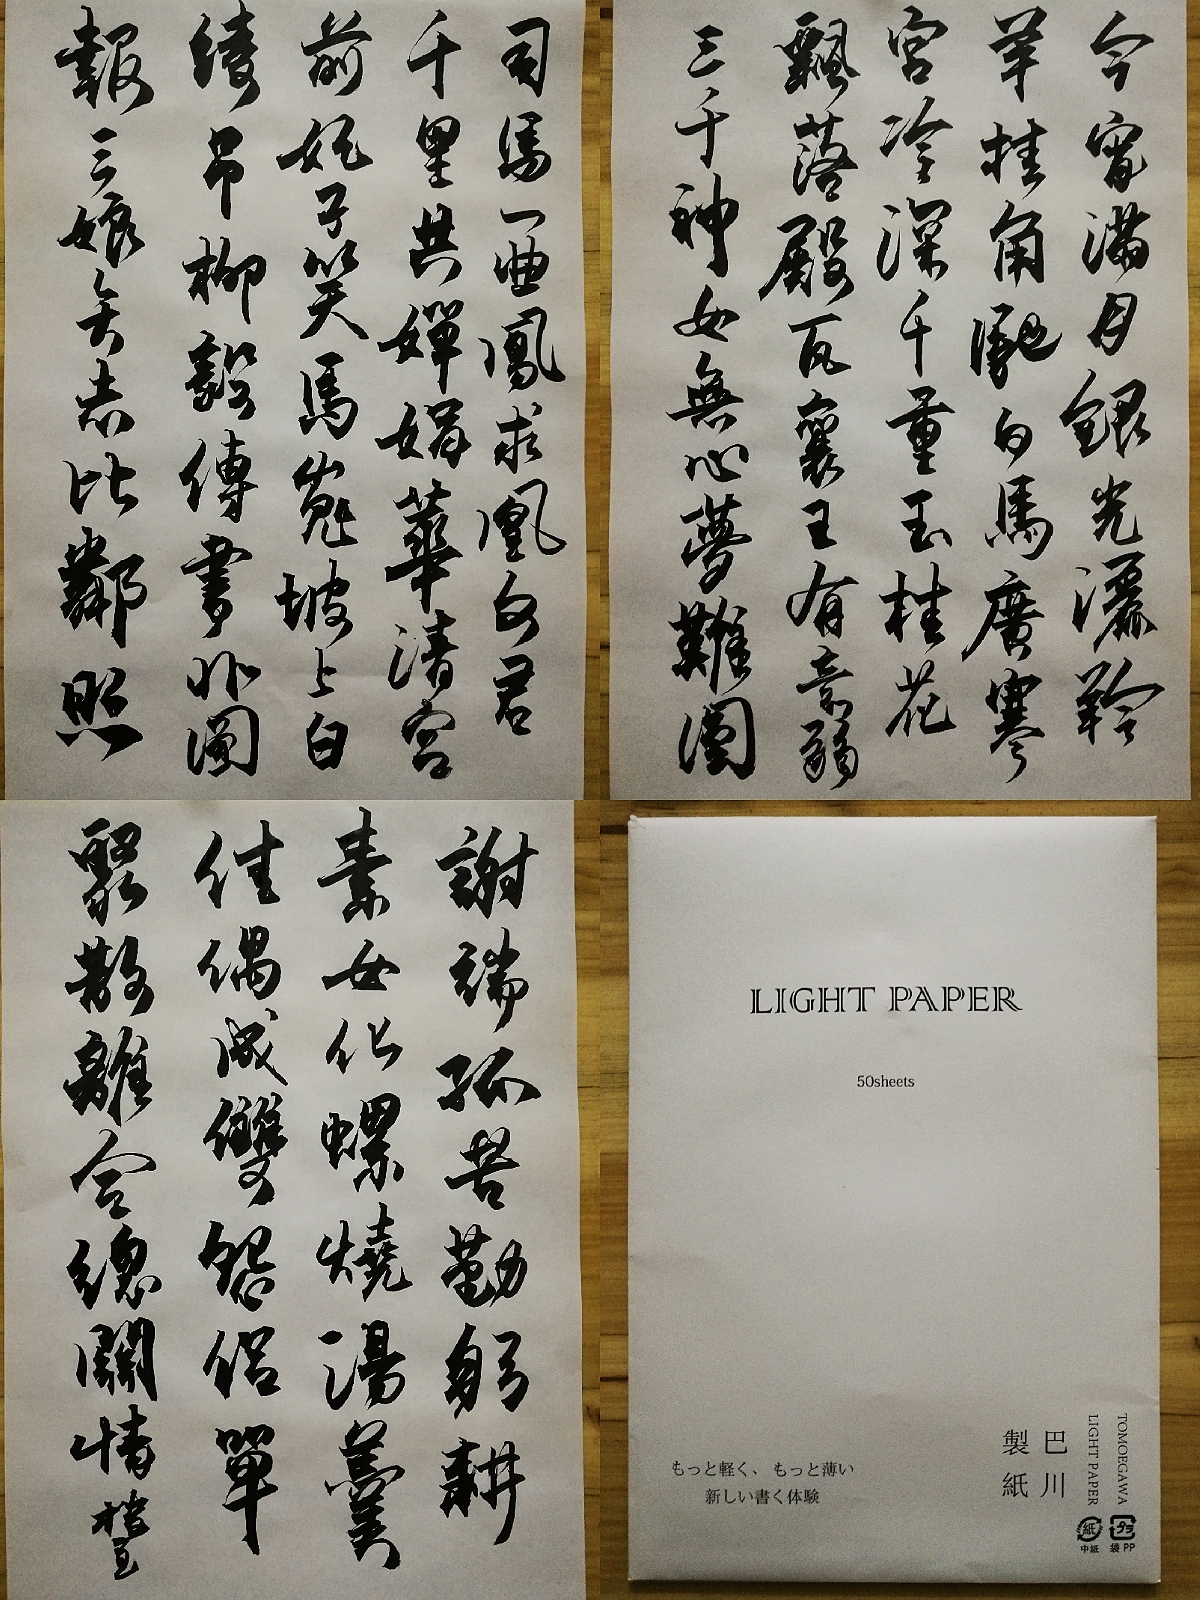 今宵滿月銀光灑羚
羊挂角馳白馬廣寒
宮冷深千重玉桂花
飄落殿瓦襄王有意弱
三千神女無心夢難圓
司馬一曲鳳求凰文君
千里共嬋娟華清宮
前妃子笑馬嵬坡上白
綾吊柳毅傳書非圖
報三娘矢志比鄰照
謝端孤苦勤躬耕
素女化螺燒湯羹
佳偶成雙怨侶單
聚散離合總關情
LIGHT PAPER
50sheets
もっと軽く、もっと薄い
新しい書く体験
巴川
製紙
TOMOEGAWA
LIGHT PAPER
紙
中紙
プラ
袋 PP